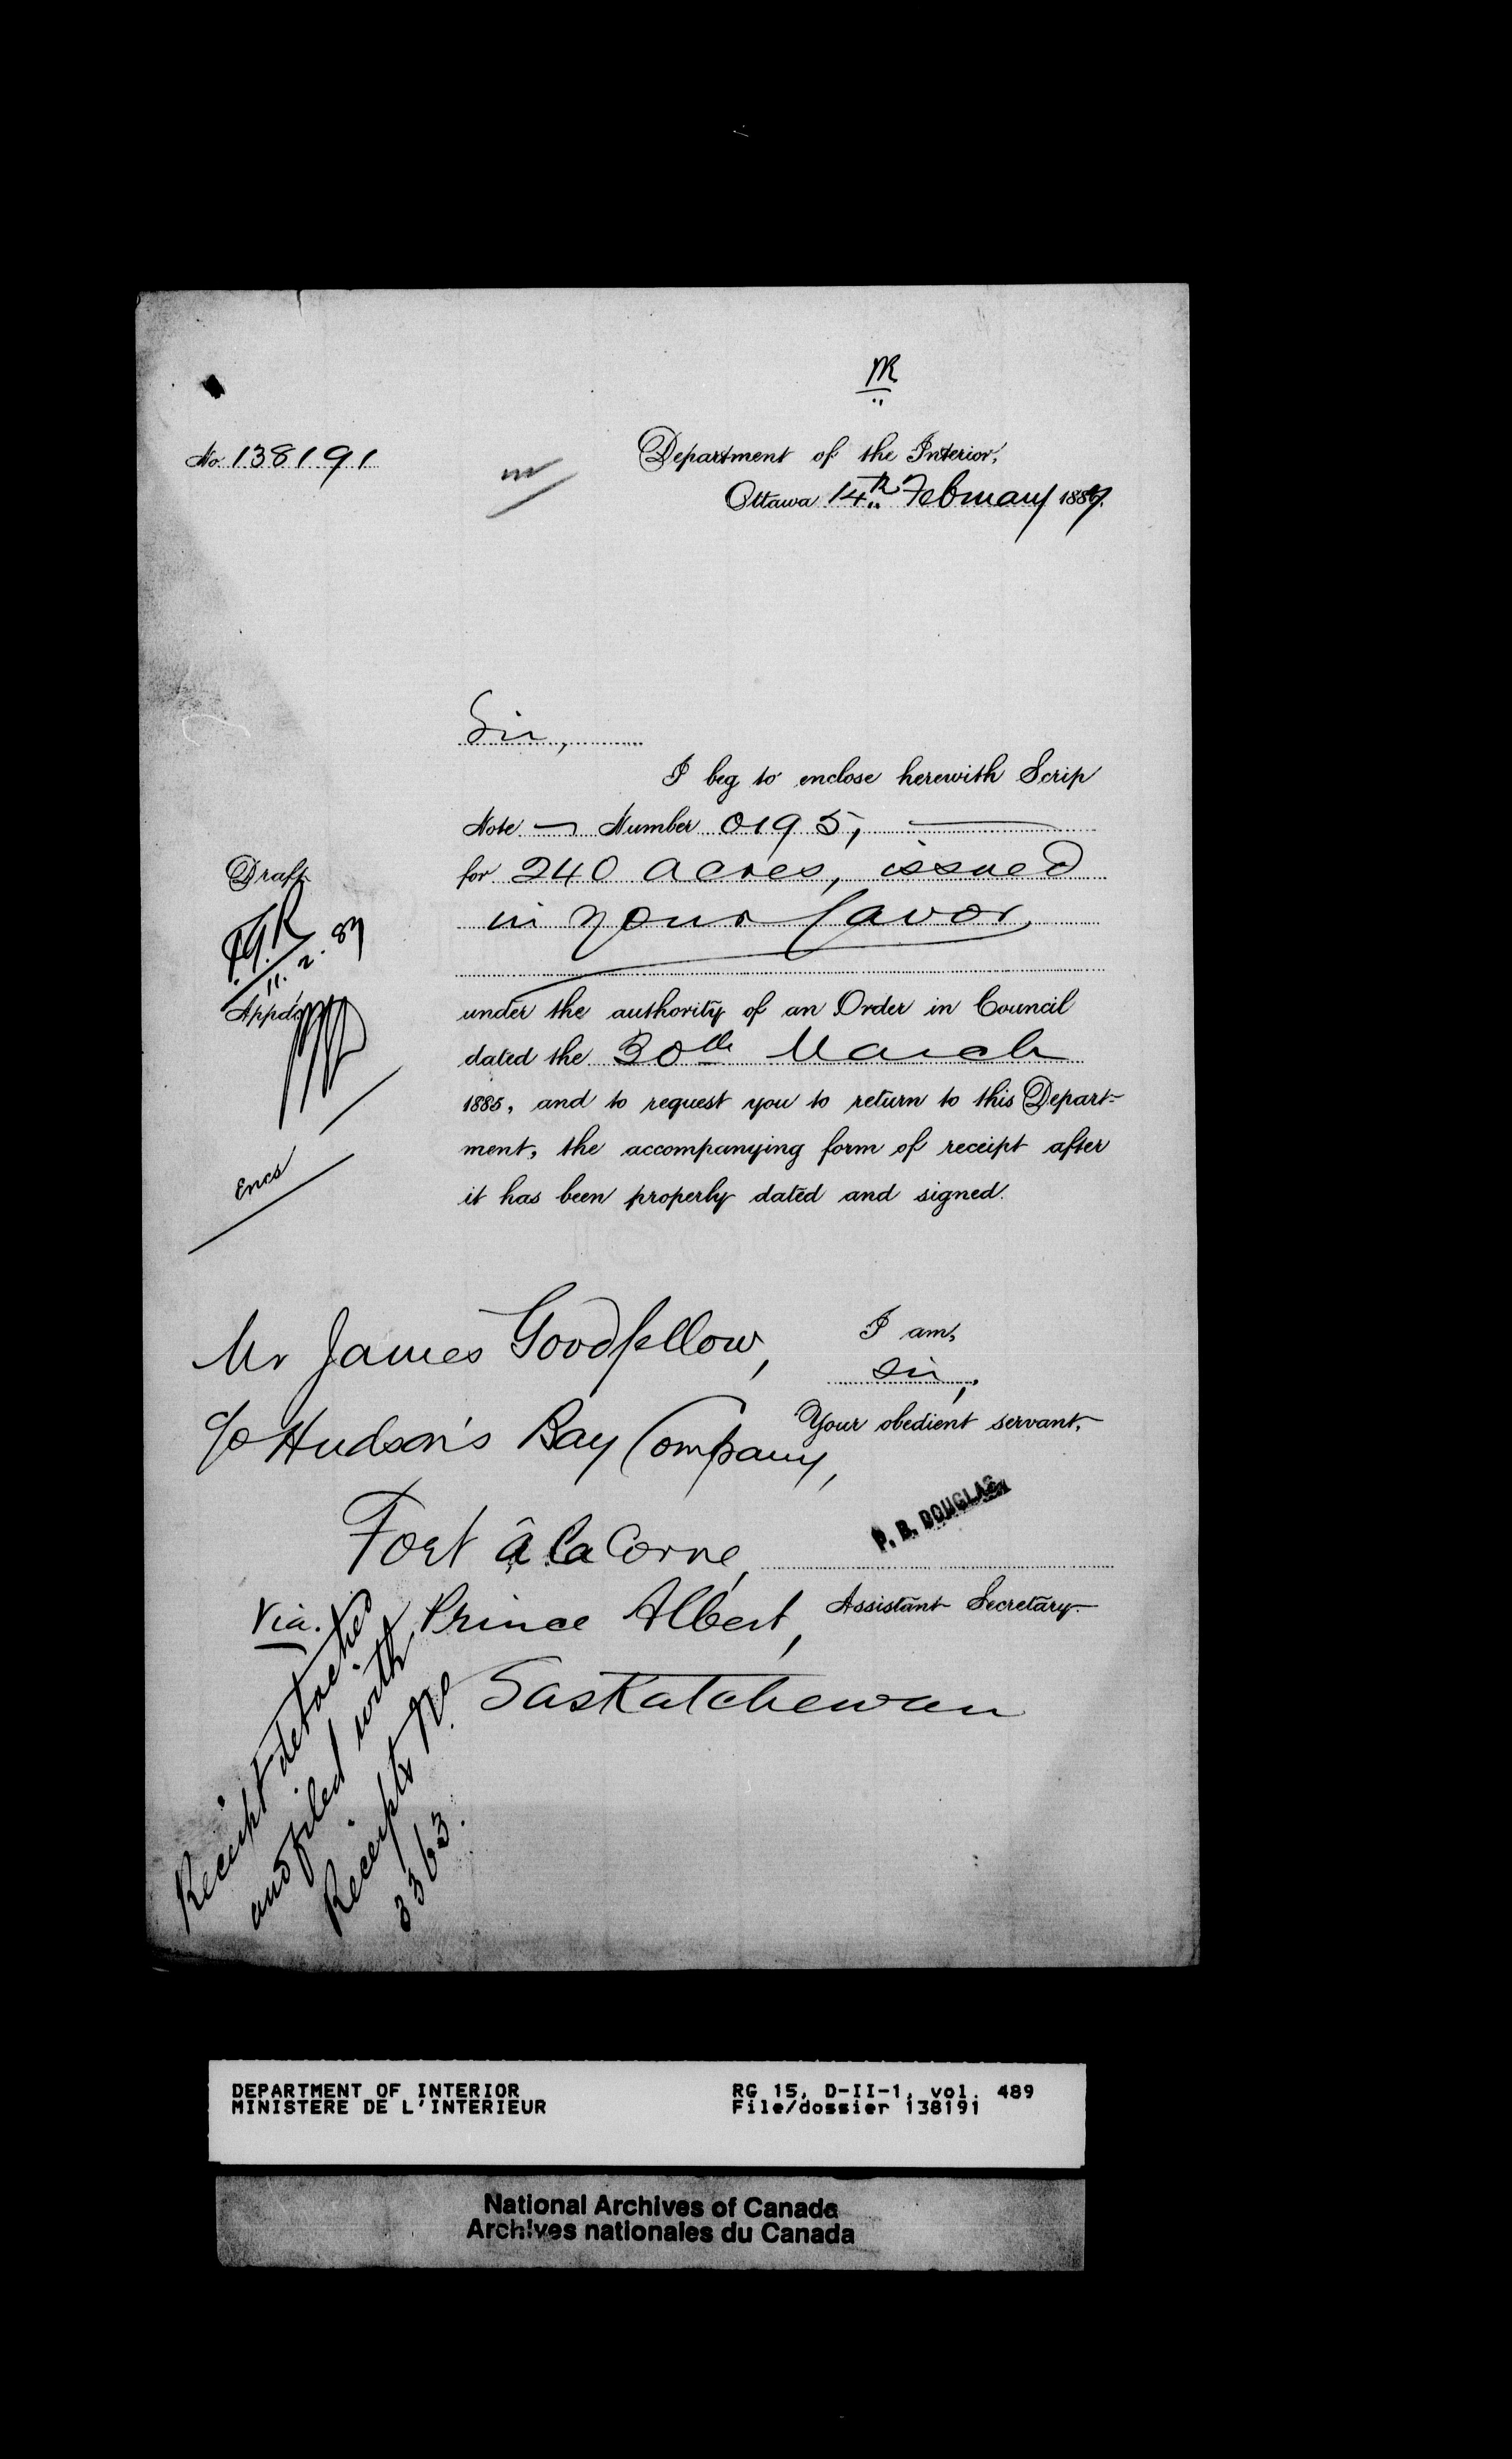 No. 138191
Department of the Interior,
Ottawa 14th February 1887.
Sir,
I beg to enclose herewith Scrip
Note — Number 0195,
for 240 acres, issued
in your favor
under the authority of an Order in Council
dated the 30th March
1885, and to request you to return to this Depart-
ment, the accompanying form of receipt after
it has been properly dated and signed.
Draft
11.2.87
Appd.
Encs
I am,
Sir,
Your obedient servant,
P. B. DOUGLAS
Assistant Secretary.
Mr James Goodfellow,
c/o Hudson's Bay Company,
Fort à la Corne,
Via. Prince Albert,
Saskatchewan
Receipt detached
and filed with
Receipts No.
3363.
DEPARTMENT OF INTERIOR
MINISTERE DE L'INTERIEUR
RG 15, D-II-1, vol. 489
File/dossier 138191
National Archives of Canada
Archives nationales du Canada